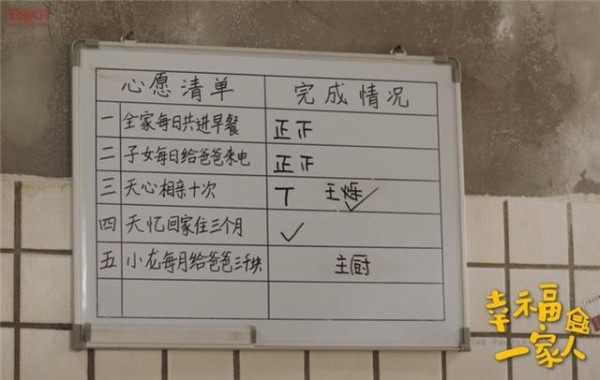 心愿清单 完成情况
一 全家每日共进早餐 正正
二 子女每日给爸爸来电 正正
三 天心相亲十次 丅 王烁
四 天忆回家住三个月
五 小龙每月给爸爸三千块 主厨
幸福
一家人